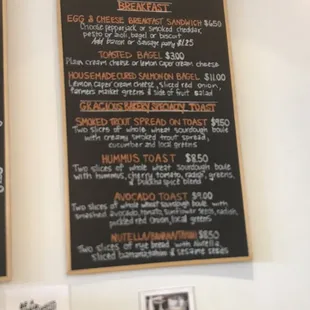 BREAKFAST
EGG & CHEESE BREAKFAST SANDWICH $6.50
Choose pepperjack or smoked cheddar,
pesto or aioli, bagel or biscuit
Add bacon or sausage patty $1.25
TOASTED BAGEL $3.00
Plain cream cheese or lemon caper cream cheese
HOUSEMADE CURED SALMON ON BAGEL $11.00
Lemon caper cream cheese, sliced red onion,
farmers market greens & side of fruit salad
BAKERY SPECIALTY TOAST
SMOKED TROUT SPREAD ON TOAST $9.50
Two slices of whole wheat sourdough boule
with creamy smoked trout spread,
cucumber and local greens
HUMMUS TOAST $8.50
Two slices of whole wheat sourdough boule
with hummus, cherry tomato, radish, greens,
& dukkha spice blend
AVOCADO TOAST $9.00
Two slices of whole wheat sourdough boule with
smashed avocado, tomato, sunflower seeds, radish,
pickled red onion, local greens
NUTELLA/BANANA/TAHINI $8.50
Two slices of rye bread with Nutella,
sliced banana, tahini & sesame seeds